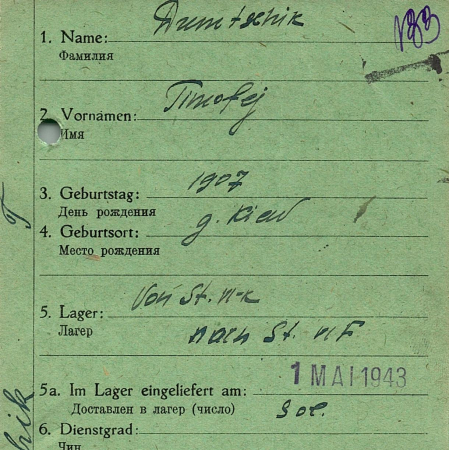 133
1. Name: Dumtschik
Фамилия
2. Vornamen: Timofej
Имя
3. Geburtstag: 1907
День рождения
4. Geburtsort: g. Kiew
Место рождения
5. Lager: Von St. VI-K
Лагер nach St. VI F
1 MAI 1943
5a. Im Lager eingeliefert am:
Доставлен в лагер (число) Sol.
6. Dienstgrad:
Чин